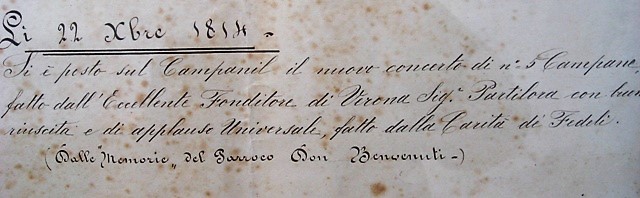 Li 22 Xbre 1814.-
Si è posto sul Campanil il nuovo concerto di n.º 5 Campane
fatto dall'Eccellente Fonditore di Verona Sig.r Partilora con buon
riuscita e di applauso Universale, fatto dalla Carità de' Fedeli.
(Dalle "Memorie" del Parroco Don Benvenuti-)